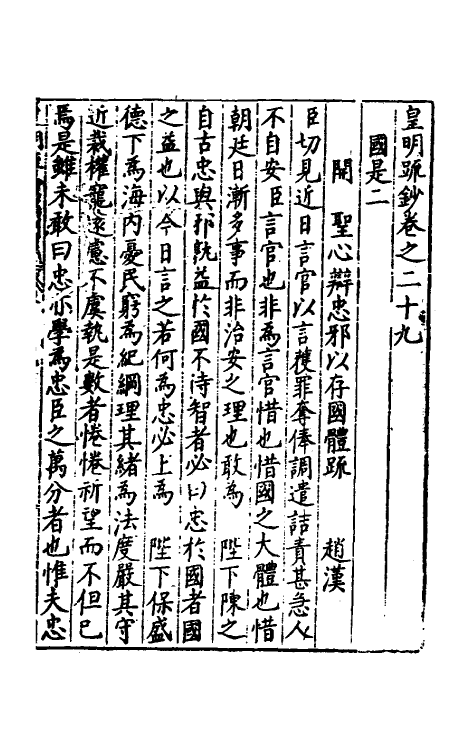 皇明疏鈔卷之二十九
國是二
開 聖心辯忠邪以存國體疏 趙漢
臣切見近日言官以言獲罪奪俸調遣詰責甚急人
不自安臣言官也非為言官惜也惜國之大體也惜
朝廷日漸多事而非治安之理也敢為 陛下陳之
自古忠與邪孰益於國不待智者必曰忠於國者國
之益也以今日言之若何為忠必上為 陛下保盛
德下為海内憂民窮為紀綱理其緒為法度嚴其守
近裁權寵遠憲不虞執是數者惓惓祈望而不但已
焉是雖未敢曰忠亦學為忠臣之萬分者也惟夫忠